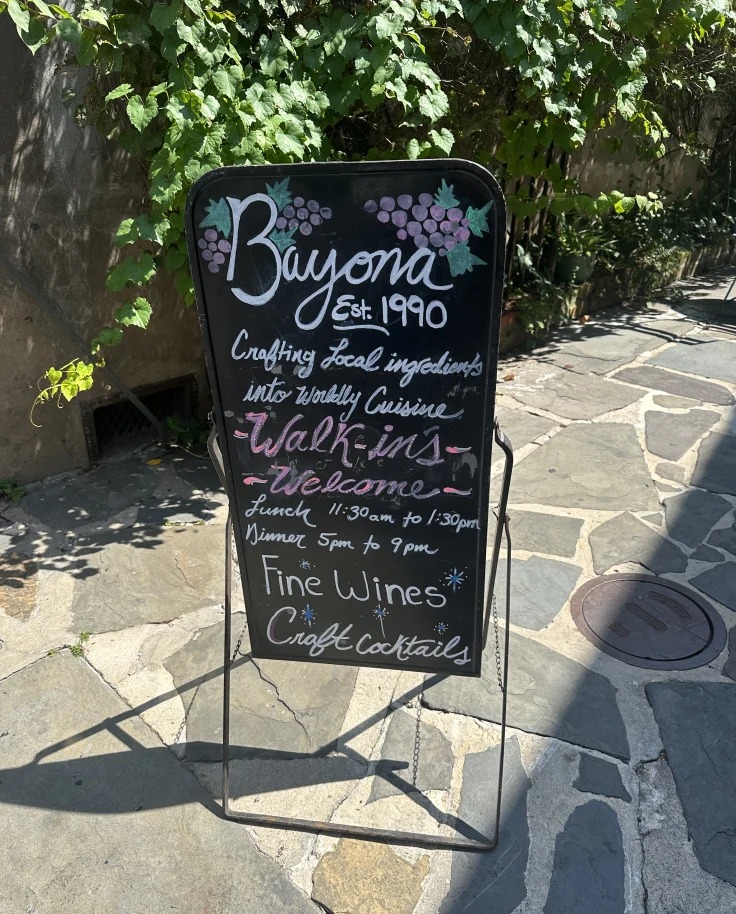 Bayona
Est. 1990
Crafting Local ingredients
into Worldly Cuisine
-Walk-in's-
-Welcome-
Lunch 11:30am to 1:30pm
Dinner 5pm to 9pm
Fine Wines
Craft Cocktails